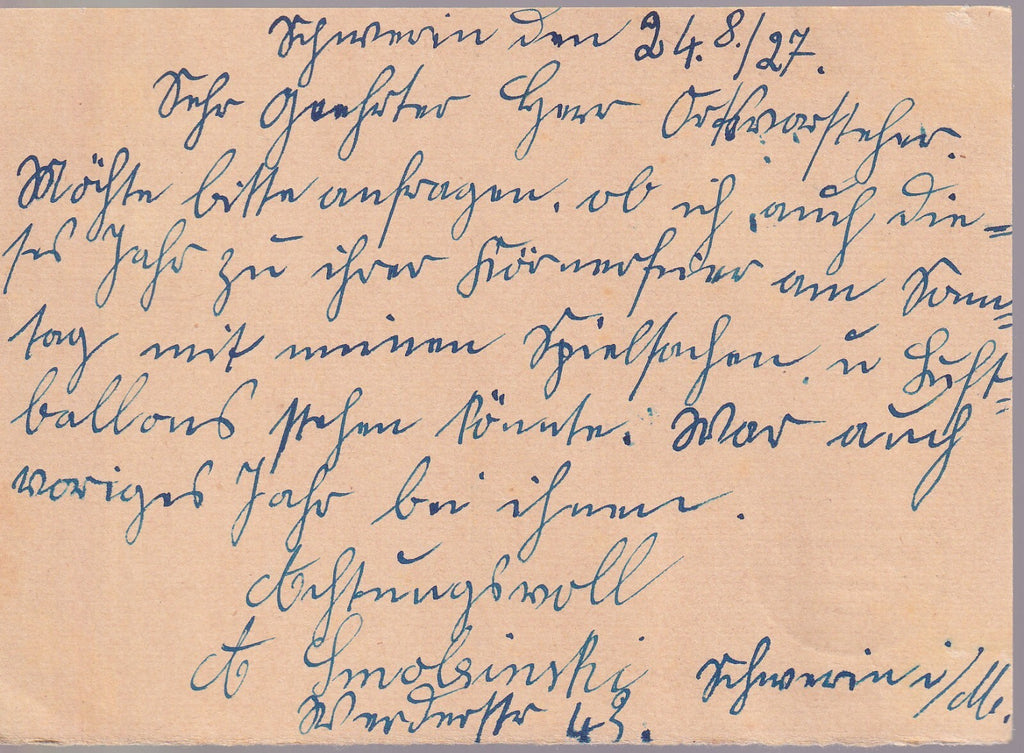 Schwerin den 24.8./27.
Sehr Geehrter Herr Ortsvorsteher.
Möchte bitte anfragen, ob ich, auch die=
ses Jahr zu ihrer Körnerfeier am Sonn=
tag mit meinen Spielsachen, u Luft=
ballons stehen könnte. War auch
voriges Jahr bei ihnen.
Achtungsvoll
A Smolsinski Schwerin i/M.
Werderstr 43.